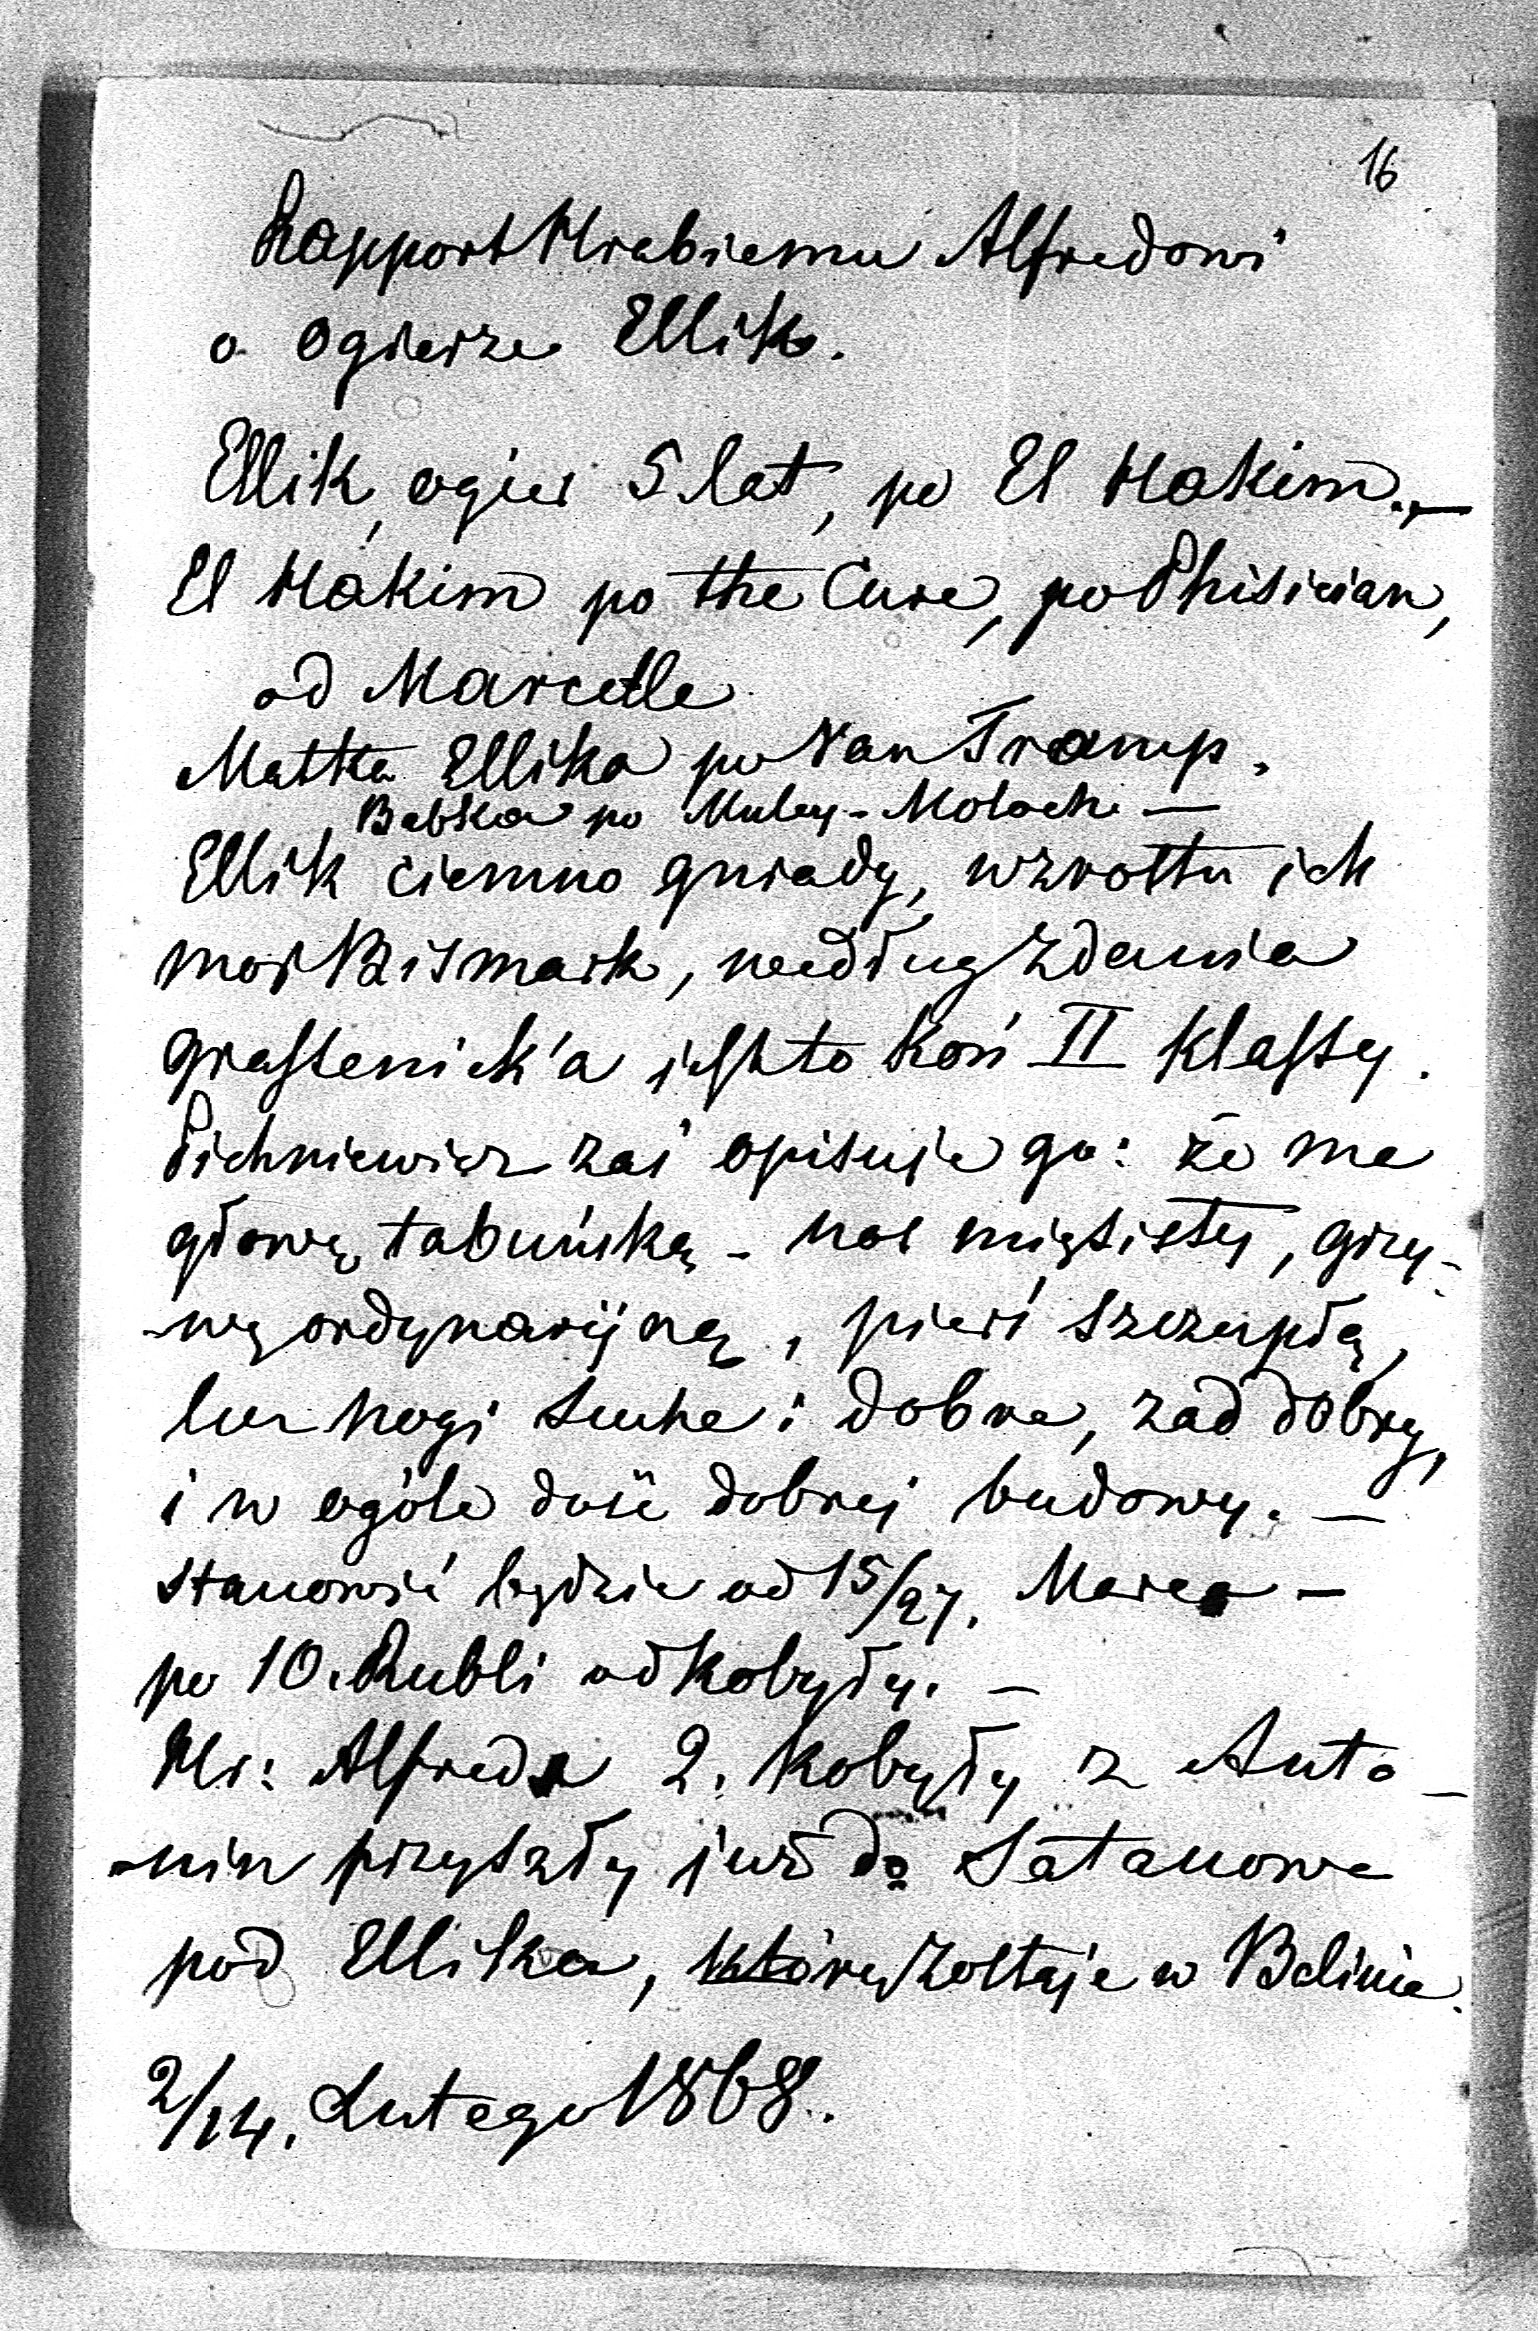 16
Rapport Hrabiemu Alfredowi
o Ogierze Ellik.
Ellik, ogier 5 lat, po El Hakim. —
El Hakim po the Cure, po Phisician,
od Marcelle
Matka Ellika po Van Tramp.
Babka po Muley-Moloch —
Ellik ciemno gniady, wzrostu jak
Bismark, według zdania
to koń II klassy.
Pichniewicz zaś opisuje go: że ma
głowę tabuńską - nos mięsisty, grzy-
-wę ordynaryjną, pierś szczupłą,
lecz nogi suche i dobre, zad dobry,
i w ogóle dość dobrej budowy. —
Stanowić będzie od 15/27. Marca —
po 10. Rubli od kobyły. —
Hr: Alfreda 2. kobyły z Anto-
-nin przyszły już do Satanowa
pod Ellika, który zostaje w Belinie.
2/14. Lutego 1868.